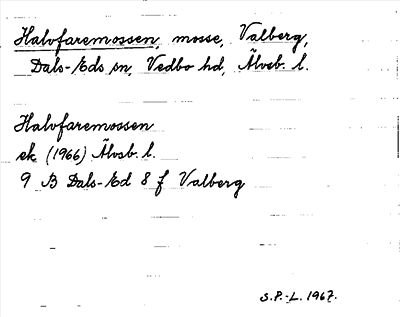 Halvfaremossen, mosse, Valberg,
Dals-Eds sn, Vedbo hd, Älvsb. l.
Halvfaremossen
ek (1966) Älvsb. l.
9 B Dals-Ed 8 f Valberg
S.P.-L. 1967.